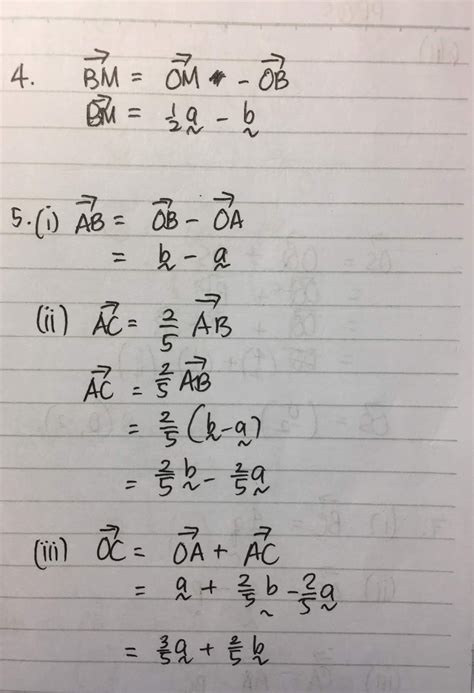 4. BM→ = OM→ - OB→
BM→ = ½a̰ - b̰
5. (i) AB→ = OB→ - OA→
= b̰ - a̰
(ii) AC→ = 2/5 AB→
AC→ = 2/5 AB→
= 2/5 (b̰ - a̰)
= 2/5 b̰ - 2/5 a̰
(iii) OC→ = OA→ + AC→
= a̰ + 2/5 b̰ - 2/5 a̰
= 3/5 a̰ + 2/5 b̰